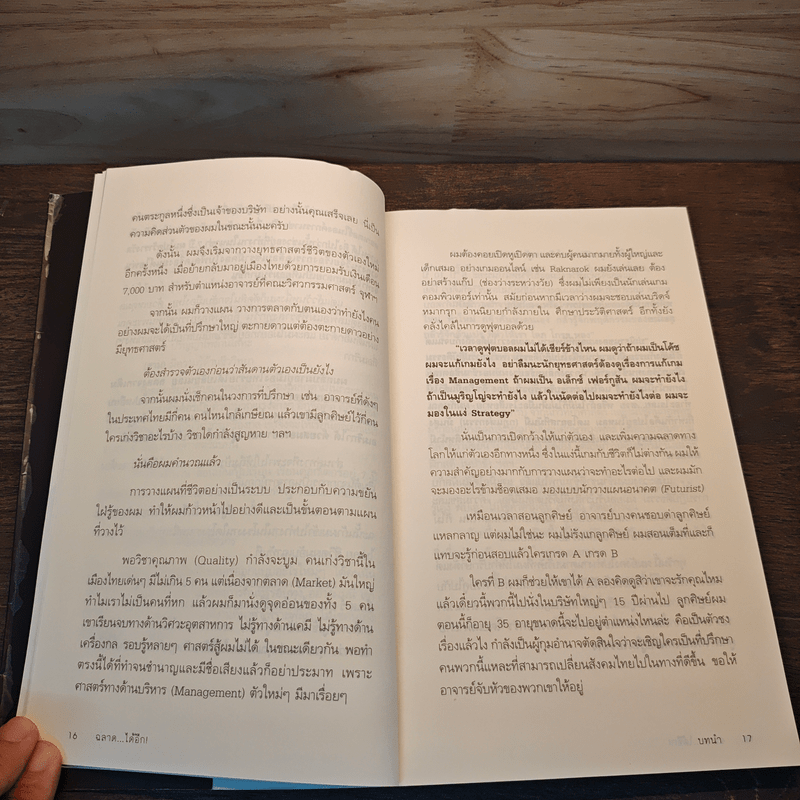 คนตระกูลหนึ่งซึ่งเป็นเจ้าของบริษัท อย่างนั้นคุณเสร็จเลย นี่เป็น
ความคิดส่วนตัวของผมในขณะนั้นนะครับ
ดังนั้น ผมจึงเริ่มจากวางยุทธศาสตร์ชีวิตของตัวเองใหม่
อีกครั้งหนึ่ง เมื่อย้ายกลับมาอยู่เมืองไทยด้วยการยอมรับเงินเดือน
7,000 บาท สำหรับตำแหน่งอาจารย์ที่คณะวิศวกรรมศาสตร์ จุฬาฯ
จากนั้น ผมก็วางแผน วางการตลาดกับตนเองว่าทำยังไงคน
อย่างผมจะได้เป็นที่ปรึกษาใหญ่ ตะกายดาวแต่ต้องตะกายดาวอย่าง
มียุทธศาสตร์
ต้องสำรวจตัวเองก่อนว่าสันดานตัวเองเป็นยังไง
จากนั้นผมนั่งเช็กคนในวงการที่ปรึกษา เช่น อาจารย์ที่ดังๆ
ในประเทศไทยมีกี่คน คนไหนใกล้เกษียณ แล้วเขามีลูกศิษย์ไว้กี่คน
ใครเก่งวิชาอะไรบ้าง วิชาใดกำลังสูญหาย ฯลฯ
นั่นคือผมคำนวณแล้ว
การวางแผนที่ชีวิตอย่างเป็นระบบ ประกอบกับความขยัน
ใฝ่รู้ของผม ทำให้ผมก้าวหน้าไปอย่างดีและเป็นขั้นตอนตามแผน
ที่วางไว้
พอวิชาคุณภาพ (Quality) กำลังจะบูม คนเก่งวิชานี้ใน
เมืองไทยเด่นๆ มีไม่เกิน 5 คน แต่เนื่องจากตลาด (Market) มันใหญ่
ทำไมเราไม่เป็นคนที่หก แล้วผมก็มานั่งดูจุดอ่อนของทั้ง 5 คน
เขาเรียนจบทางด้านวิศวะอุตสาหการ ไม่รู้ทางด้านเคมี ไม่รู้ทางด้าน
เครื่องกล รอบรู้หลายๆ ศาสตร์สู้ผมไม่ได้ ในขณะเดียวกัน พอทำ
ตรงนี้ได้ที่ทำจนชำนาญและมีชื่อเสียงแล้วก็อย่าประมาท เพราะ
ศาสตร์ทางด้านบริหาร (Management) ตัวใหม่ๆ มีมาเรื่อยๆ
16 ฉลาด...ได้อีก!
ผมต้องคอยเปิดหูเปิดตา และคบผู้คนมากมายทั้งผู้ใหญ่และ
เด็กเสมอ อย่างเกมออนไลน์ เช่น Raknarok ผมยังเล่นเลย ต้อง
อย่าสร้างแก๊ป (ช่องว่างระหว่างวัย) ซึ่งผมไม่เพียงเป็นนักเล่นเกม
คอมพิวเตอร์เท่านั้น สมัยก่อนหากมีเวลาว่างผมจะชอบเล่นบริดจ์
หมากรุก อ่านนิยายกำลังภายใน ศึกษาประวัติศาสตร์ อีกทั้งยัง
คลั่งไคล้ในการดูฟุตบอลด้วย
"เวลาดูฟุตบอลผมไม่ได้เชียร์ข้างไหน ผมดูว่าถ้าผมเป็นโค้ช
ผมจะแก้เกมยังไง อย่าลืมนะนักยุทธศาสตร์ต้องดูเรื่องการแก้เกม
เรื่อง Management ถ้าผมเป็น อเล็กซ์ เฟอร์กูสัน ผมจะทำยังไง
ถ้าเป็นมูริญโญ่จะทำยังไง แล้วในนัดต่อไปผมจะทำยังไงต่อ ผมจะ
มองในแง่ Strategy"
นั่นเป็นการเปิดกว้างให้แก่ตัวเอง และเพิ่มความฉลาดทาง
โลกให้แก่ตัวเองอีกทางหนึ่ง ซึ่งในแง่นี้เกมกับชีวิตก็ไม่ต่างกัน ผมให้
ความสำคัญอย่างมากกับการวางแผนว่าจะทำอะไรต่อไป และผมมัก
จะมองอะไรข้ามช็อตเสมอ มองแบบนักวางแผนอนาคต (Futurist)
เหมือนเวลาสอนลูกศิษย์ อาจารย์บางคนชอบด่าลูกศิษย์
แหลกลาญ แต่ผมไม่ใช่นะ ผมไม่รังแกลูกศิษย์ ผมสอนเต็มที่และก็
แทบจะรู้ก่อนสอบแล้วใครเกรด A เกรด B
ใครที่ B ผมก็ช่วยให้เขาได้ A ลองคิดดูสิว่าเขาจะรักคุณไหม
แล้วเดี๋ยวนี้พวกนี้ไปนั่งในบริษัทใหญ่ๆ 15 ปีผ่านไป ลูกศิษย์ผม
ตอนนี้ก็อายุ 35 อายุขนาดนี้จะไปอยู่ตำแหน่งไหนล่ะ คือเป็นตัวชง
เรื่องแล้วไง กำลังเป็นผู้กุมอำนาจตัดสินใจว่าจะเชิญใครเป็นที่ปรึกษา
คนพวกนี้แหละที่สามารถเปลี่ยนสังคมไทยไปในทางที่ดีขึ้น ขอให้
อาจารย์จับหัวของพวกเขาให้อยู่
บทนำ 17